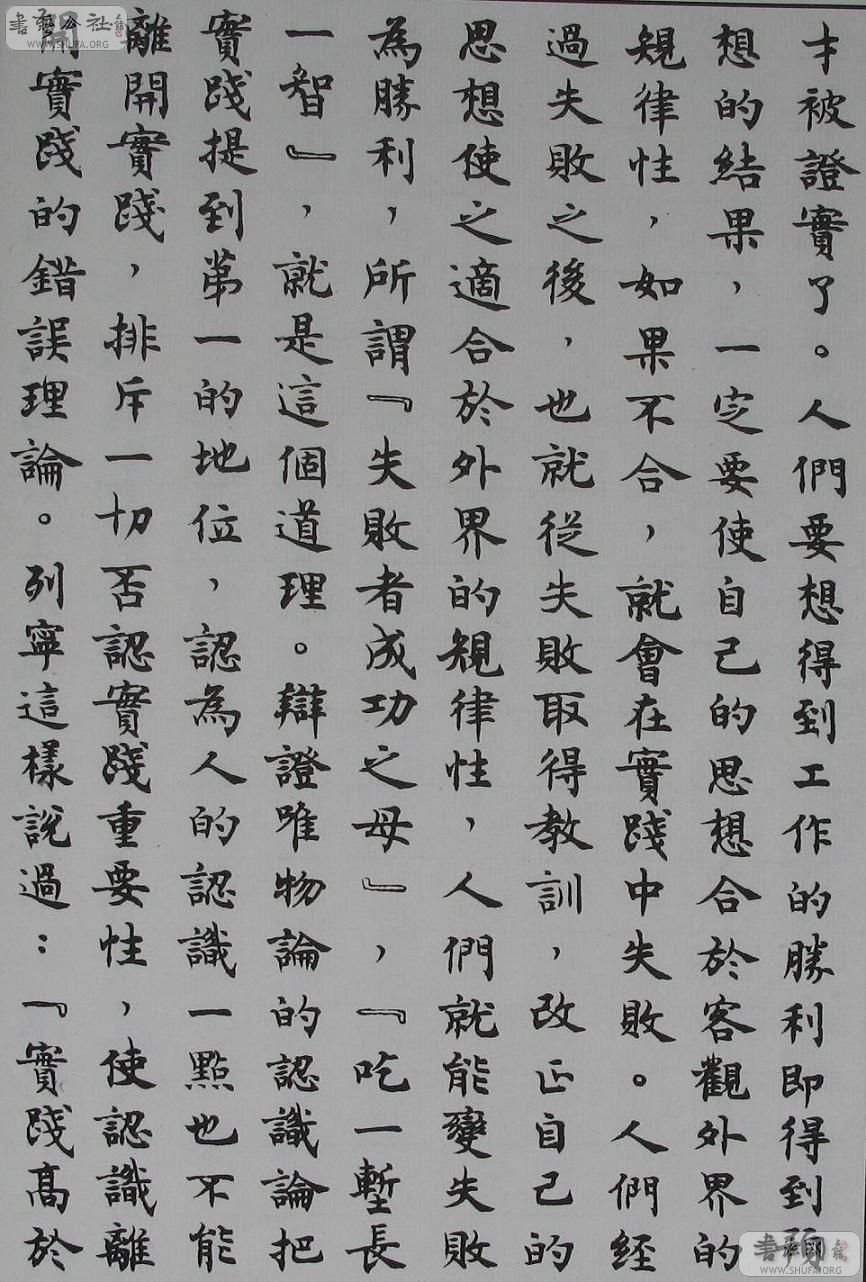 才被證實了。人們要想得到工作的勝利即得到預
想的結果，一定要使自己的思想合於客觀外界的
規律性，如果不合，就會在實踐中失敗。人們經
過失敗之後，也就從失敗取得教訓，改正自己的
思想使之適合於外界的規律性，人們就能變失敗
為勝利，所謂『失敗者成功之母』，『吃一塹長
一智』，就是這個道理。辯證唯物論的認識論把
實踐提到第一的地位，認為人的認識一點也不能
離開實踐，排斥一切否認實踐重要性，使認識離
開實踐的錯誤理論。列寧這樣說過：『實踐高於
書法公社
WWW.SHUFA.ORG
WWW.SHUFA.ORG